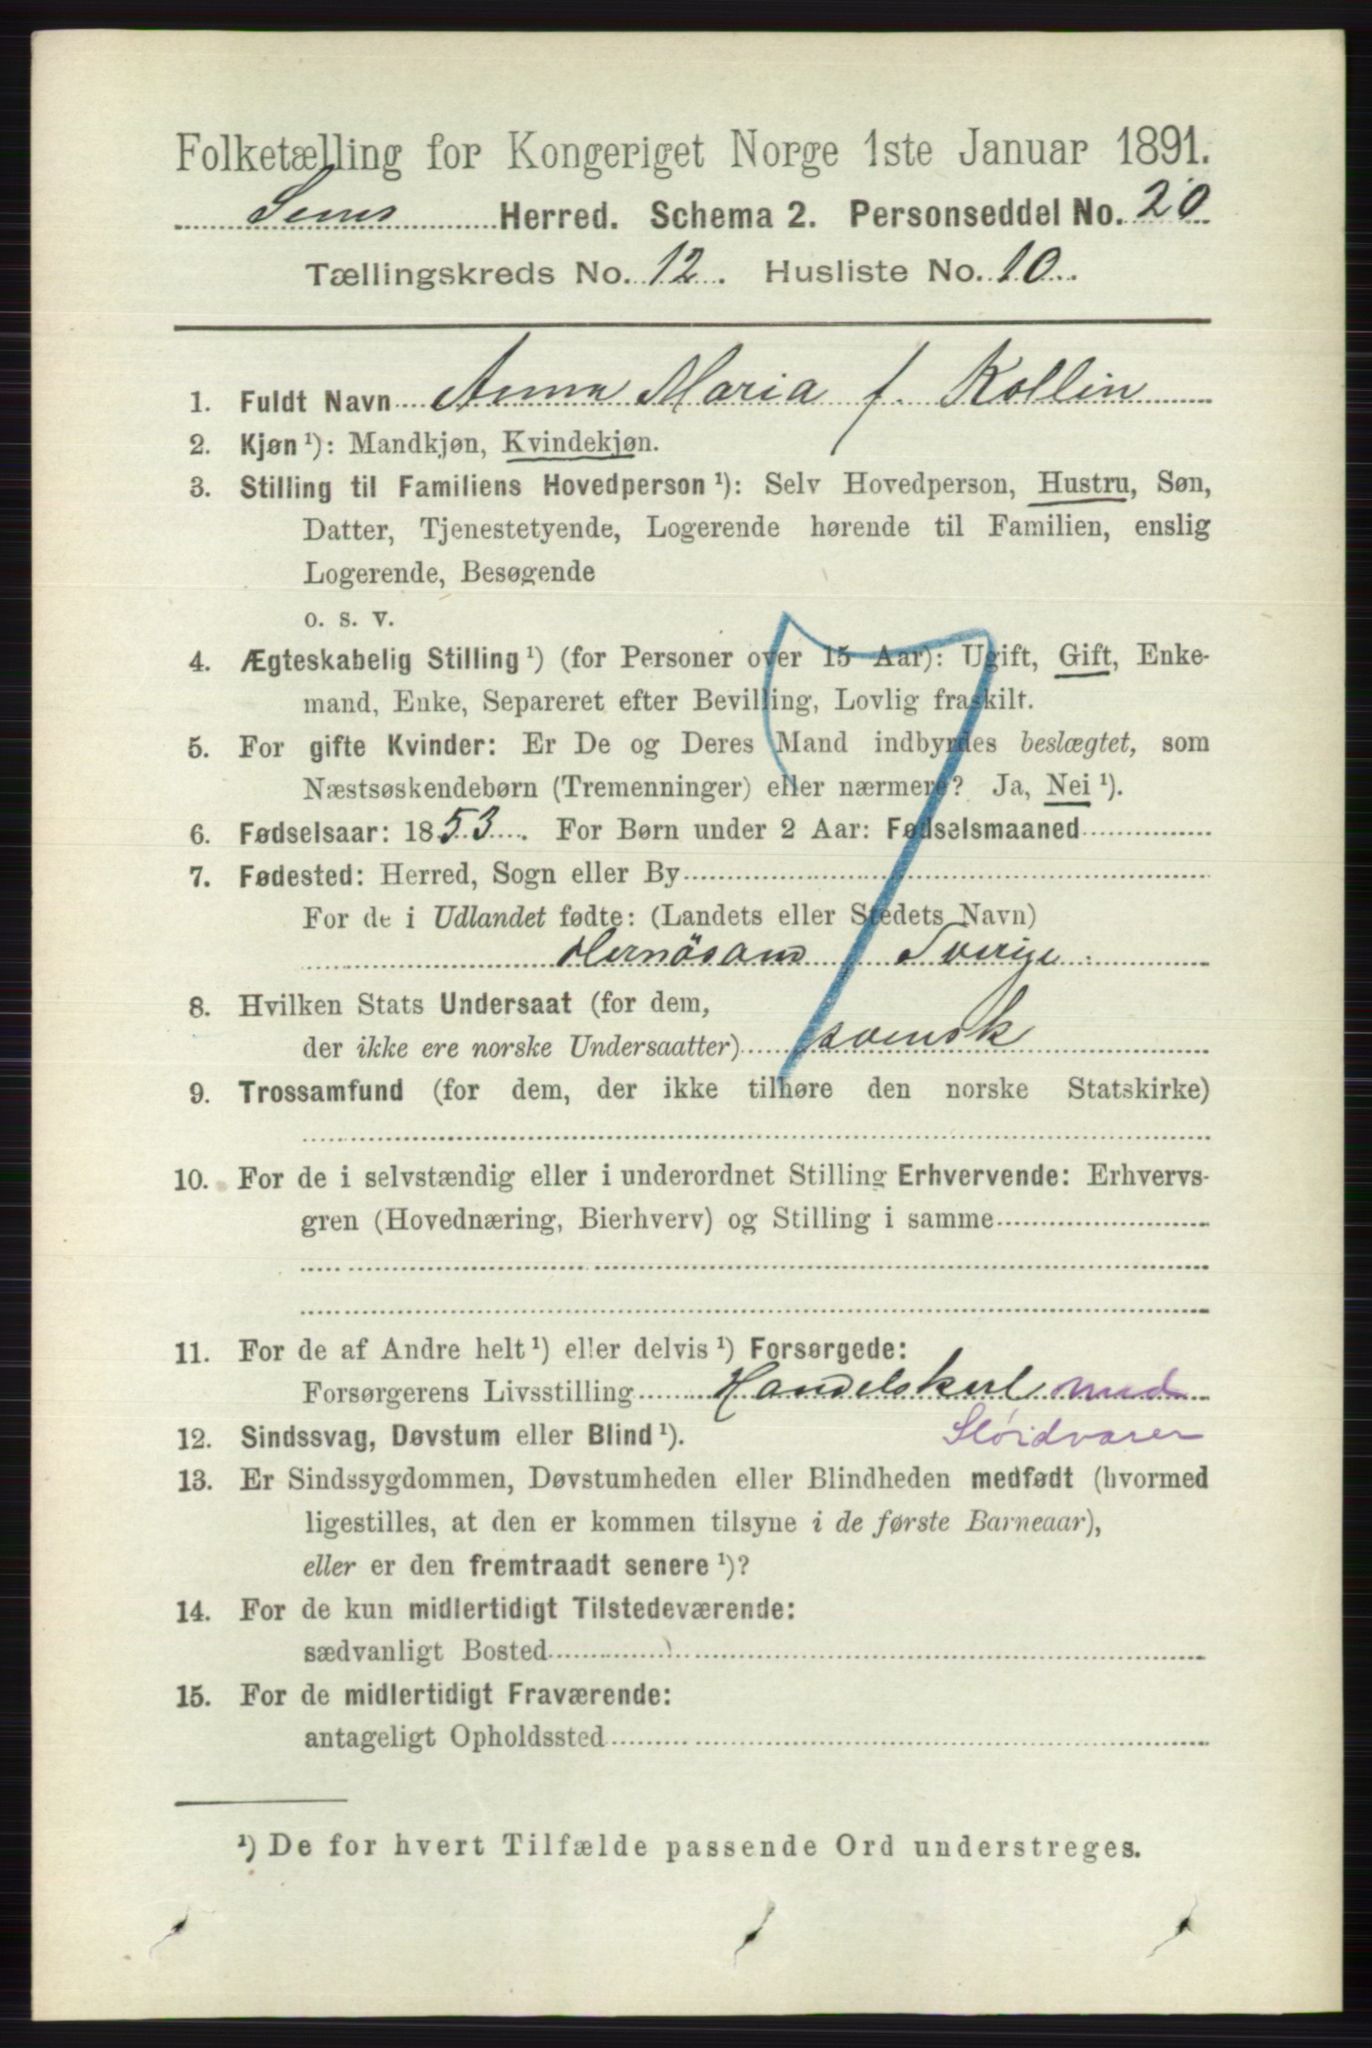 Folketælling for Kongeriget Norge 1ste Januar 1891.
Sems Herred. Schema 2. Personseddel No. 20
Tællingskreds No. 12. Husliste No. 10.
1. Fuldt Navn Anna Maria f. Kollin
2. Kjøn ¹): Mandkjøn, Kvindekjøn.
3. Stilling til Familiens Hovedperson ¹): Selv Hovedperson, Hustru, Søn,
Datter, Tjenestetyende, Logerende hørende til Familien, enslig
Logerende, Besøgende
o. s. v.
4. Ægteskabelig Stilling ¹) (for Personer over 15 Aar): Ugift, Gift, Enke-
mand, Enke, Separeret efter Bevilling, Lovlig fraskilt.
5. For gifte Kvinder: Er De og Deres Mand indbyrdes beslægtet, som
Næstsøskendebørn (Tremenninger) eller nærmere? Ja, Nei ¹).
6. Fødselsaar: 1853. For Børn under 2 Aar: Fødselsmaaned
7. Fødested: Herred, Sogn eller By
For de i Udlandet fødte: (Landets eller Stedets Navn)
Hernösand Sverige
8. Hvilken Stats Undersaat (for dem,
der ikke ere norske Undersaatter) svensk
9. Trossamfund (for dem, der ikke tilhøre den norske Statskirke)
10. For de i selvstændig eller i underordnet Stilling Erhvervende: Erhvervs-
gren (Hovednæring, Bierhverv) og Stilling i samme
11. For de af Andre helt ¹) eller delvis ¹) Forsørgede:
Forsørgerens Livsstilling Handelskarl med
Slöidvarer
12. Sindssvag, Døvstum eller Blind ¹).
13. Er Sindssygdommen, Døvstumheden eller Blindheden medfødt (hvormed
ligestilles, at den er kommen tilsyne i de første Barneaar),
eller er den fremtraadt senere ¹)?
14. For de kun midlertidigt Tilstedeværende:
sædvanligt Bosted
15. For de midlertidigt Fraværende:
antageligt Opholdssted
¹) De for hvert Tilfælde passende Ord understreges.